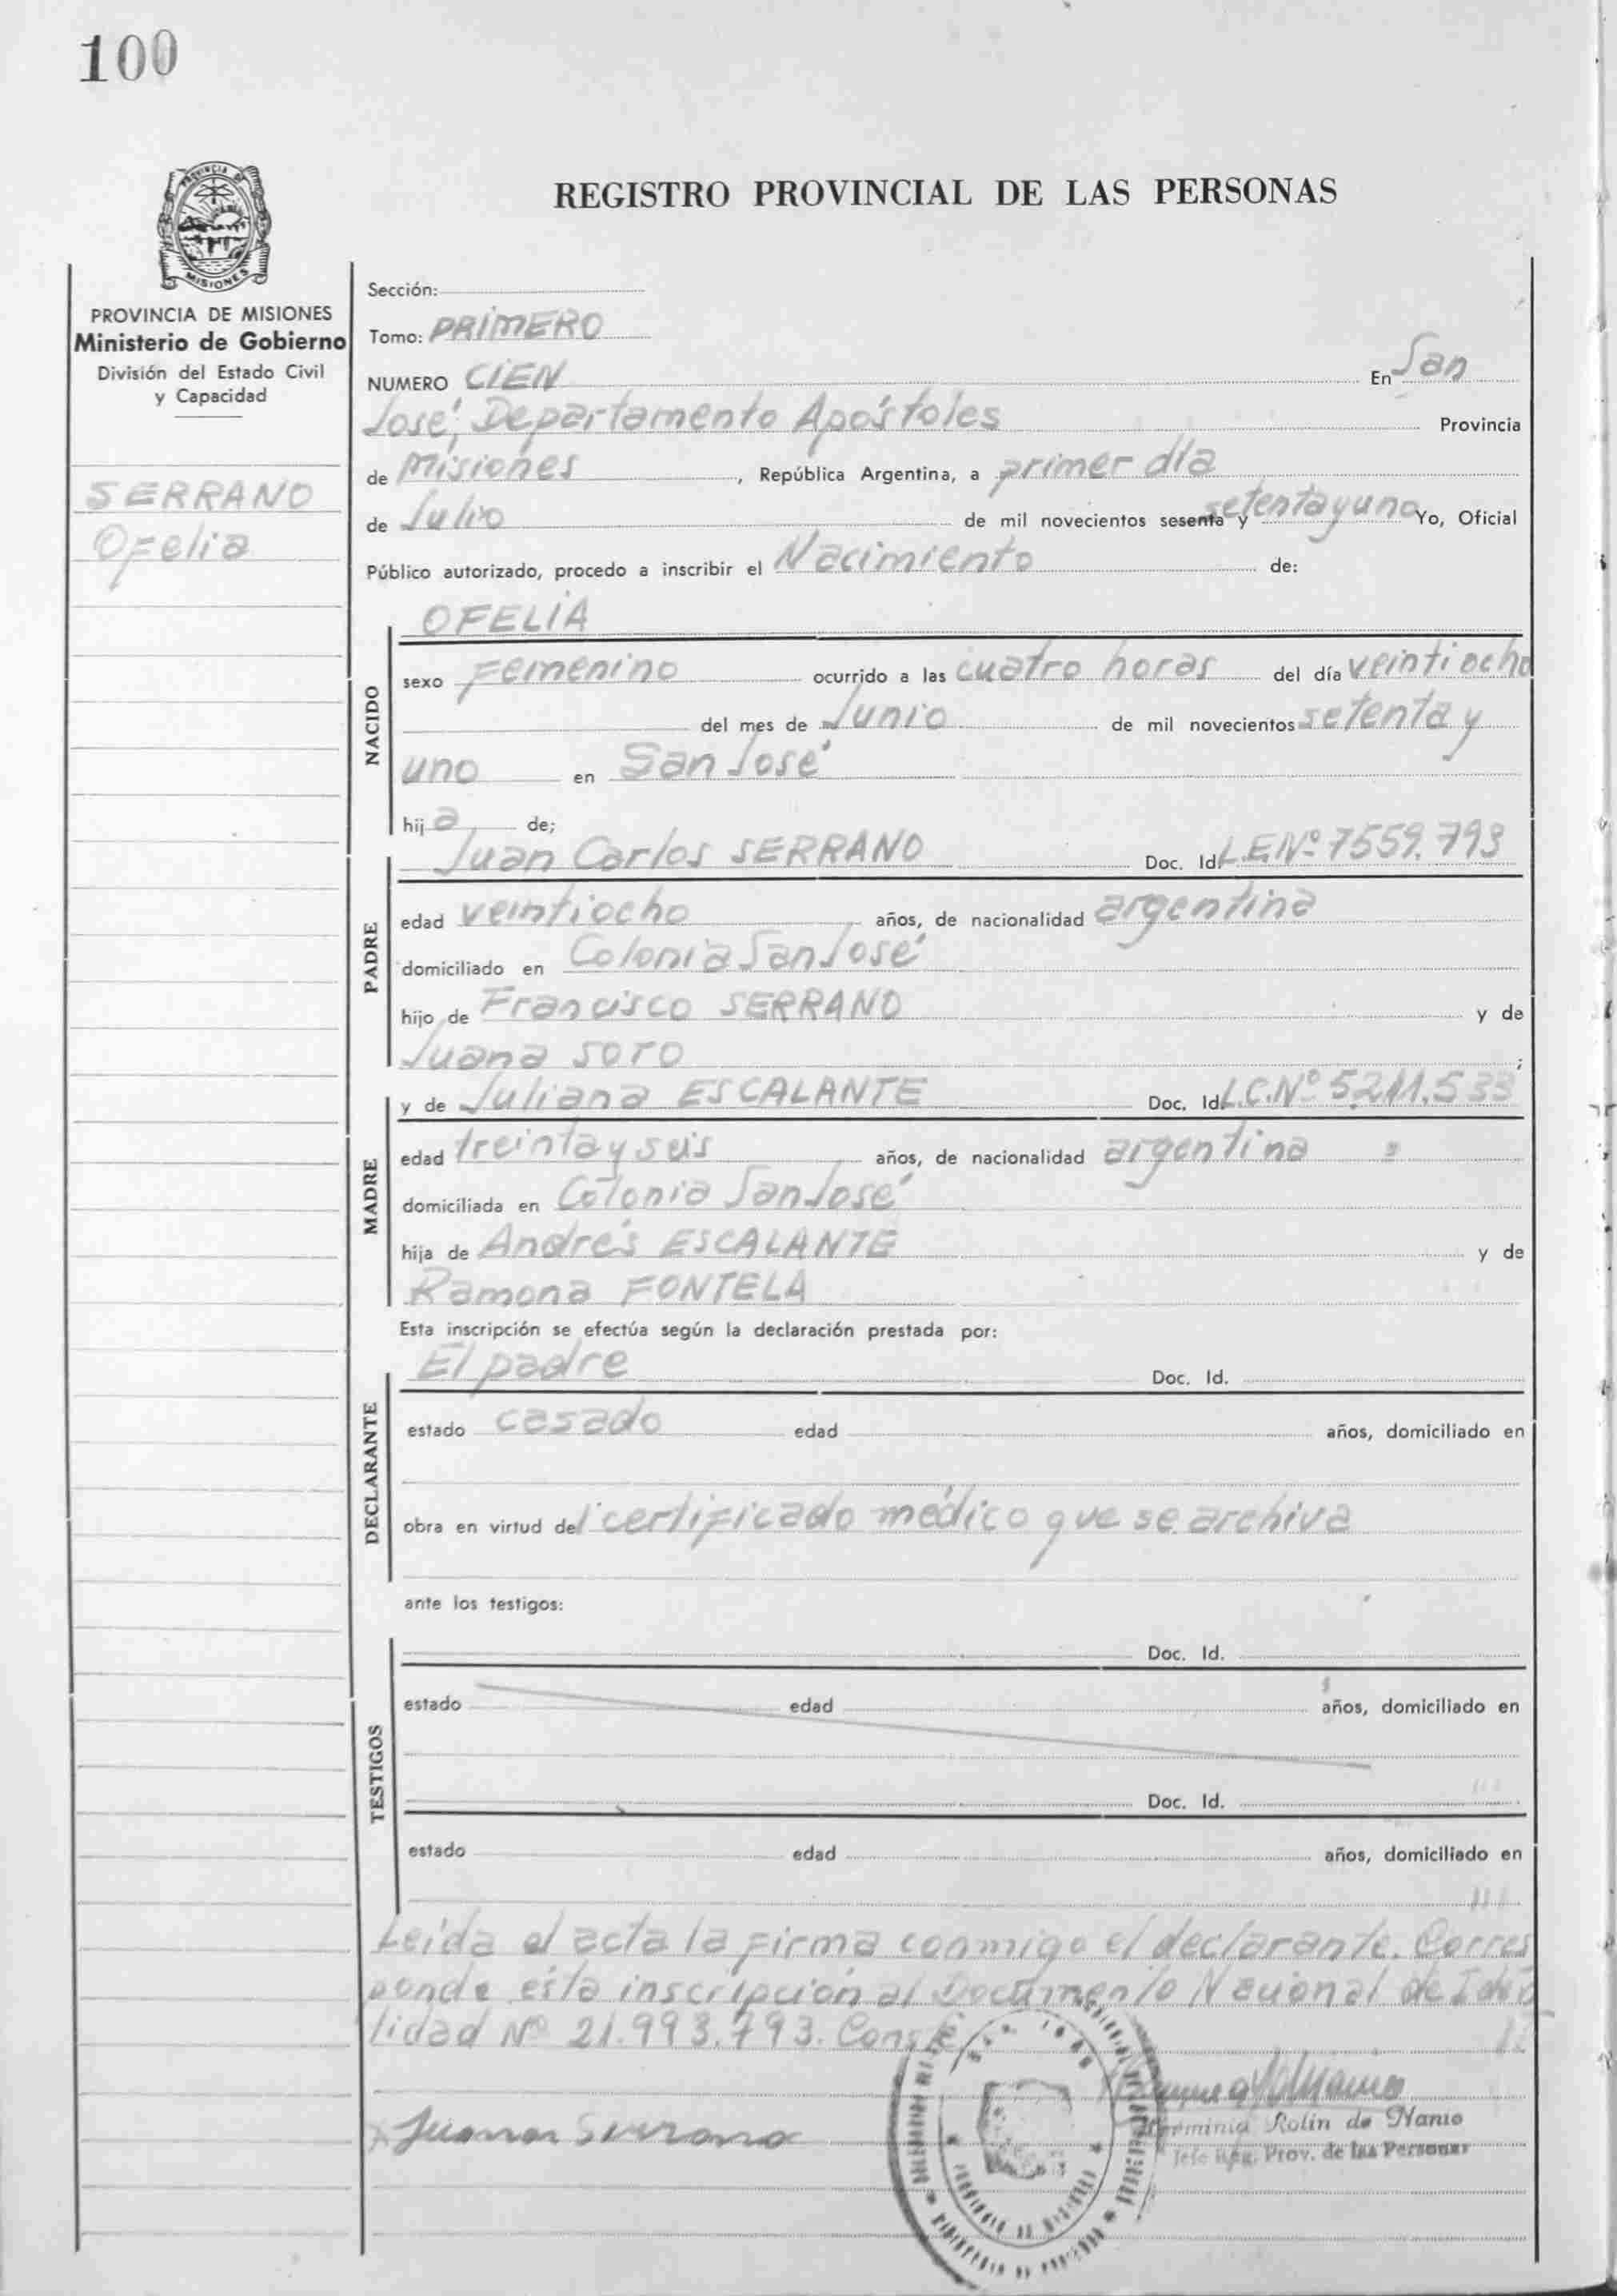 100
PROVINCIA DE
MISIONES
REGISTRO PROVINCIAL DE LAS PERSONAS
PROVINCIA DE MISIONES
Ministerio de Gobierno
División del Estado Civil
y Capacidad
SERRANO
Ofelia
Sección:
Tomo: PRIMERO
NUMERO CIEN En San
José, Departamento Apóstoles Provincia
de Misiones, República Argentina, a primer día
de Julio de mil novecientos sesenta y setenta y uno Yo, Oficial
Público autorizado, procedo a inscribir el Nacimiento de:
OFELIA
NACIDO
sexo Femenino ocurrido a las cuatro horas del día veintiocho
del mes de Junio de mil novecientos setenta y
uno en San José
hija de;
Juan Carlos SERRANO Doc. Id. L.E.Nº 7559.793
PADRE
edad veintiocho años, de nacionalidad argentina
domiciliado en Colonia San José
hijo de Francisco SERRANO y de
Juana SOTO ;
y de Juliana ESCALANTE Doc. Id. L.C.Nº 5.211.533
MADRE
edad treinta y seis años, de nacionalidad argentina
domiciliada en Colonia San José
hija de Andrés ESCALANTE y de
Ramona FONTELA
Esta inscripción se efectúa según la declaración prestada por:
El padre Doc. Id.
DECLARANTE
estado casado edad años, domiciliado en
obra en virtud del certificado médico que se archiva
ante los testigos:
Doc. Id.
TESTIGOS
estado edad años, domiciliado en
Doc. Id.
estado edad años, domiciliado en
Leída el acta la firma conmigo el declarante. Corres
ponde esta inscripción al Documento Nacional de Iden
tidad Nº 21.993.793. Conste
Juan Serrano
Rolin de Nanio
Jefe Reg. Prov. de las Personas